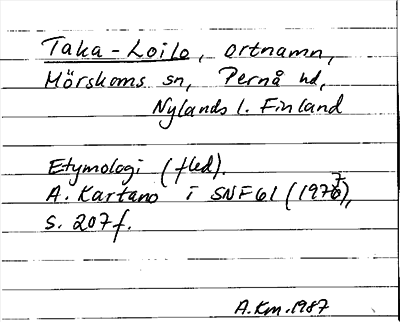 Taka-Loilo, ortnamn,
Mörskoms sn, Pernå hd,
Nylands l. Finland
Etymologi (fled).
A. Kartano i SNF 61 (1977),
s. 207 f.
A.Km.1987